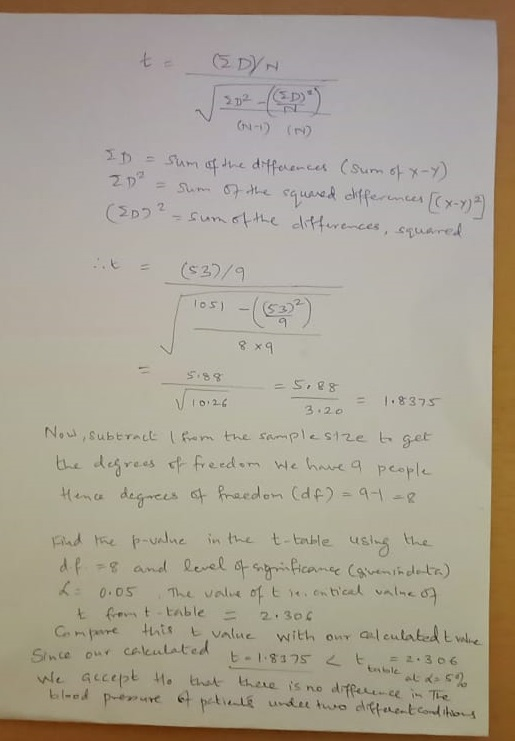 t = (ΣD)/N
√ ΣD² - ((ΣD)²/N)
(N-1) (N)
ΣD = Sum of the differences (Sum of X-Y)
ΣD² = Sum of the squared differences [(X-Y)²]
(ΣD)² = Sum of the differences, squared
∴ t = (53)/9
√ 1051 - ((53)²/9)
8 x 9
= 5.88 / √10.26 = 5.88 / 3.20 = 1.8375
Now, subtract 1 from the sample size to get
the degrees of freedom We have 9 people
Hence degrees of freedom (df) = 9-1 = 8
Find the p-value in the t-table using the
df = 8 and level of significance (given in data)
α = 0.05. The value of t i.e. critical value of
t from t-table = 2.306
Compare this t value with our calculated t value
Since our calculated t = 1.8375 < t table = 2.306
at α = 5%
We accept Ho that there is no difference in The
blood pressure of patients under two different conditions